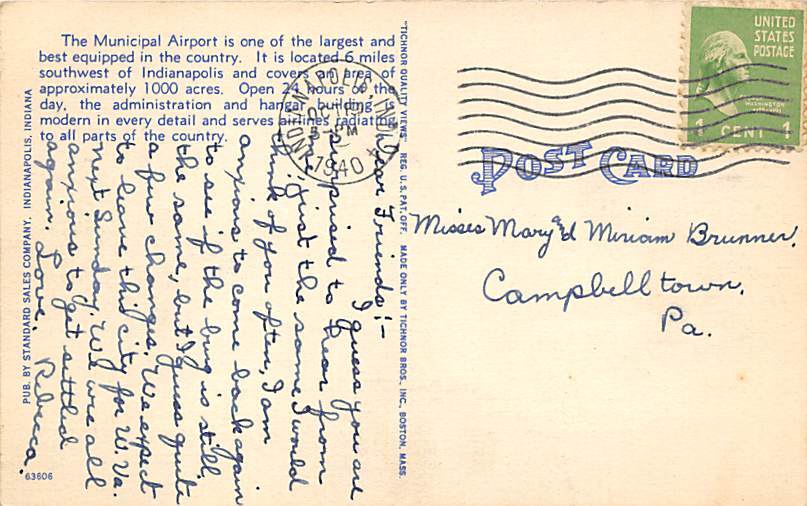 The Municipal Airport is one of the largest and
best equipped in the country. It is located 6 miles
southwest of Indianapolis and covers an area of
approximately 1000 acres. Open 24 hours of the
day, the administration and hangar building is
modern in every detail and serves airlines radiating
to all parts of the country.
Dear Friends:-
I guess you are
surprised to hear from
me, just the same I would
think of you often, I am
anxious to come back again
to see if the burg is still
the same, but I guess quite
a few changes. We expect
to leave this city for W. Va.
next Sunday. We are all
anxious to get settled
again. Love. Rebecca.
PUB. BY STANDARD SALES COMPANY, INDIANAPOLIS, INDIANA
63606
"TICHNOR QUALITY VIEWS" REG. U.S. PAT. OFF. MADE ONLY BY TICHNOR BROS., INC., BOSTON, MASS.
INDIANAPOLIS, IND.
PM
1940
UNITED
STATES
POSTAGE
WASHINGTON
1 CENT 1
POST CARD
Misses Mary & Miriam Brunner,
Campbelltown,
Pa.